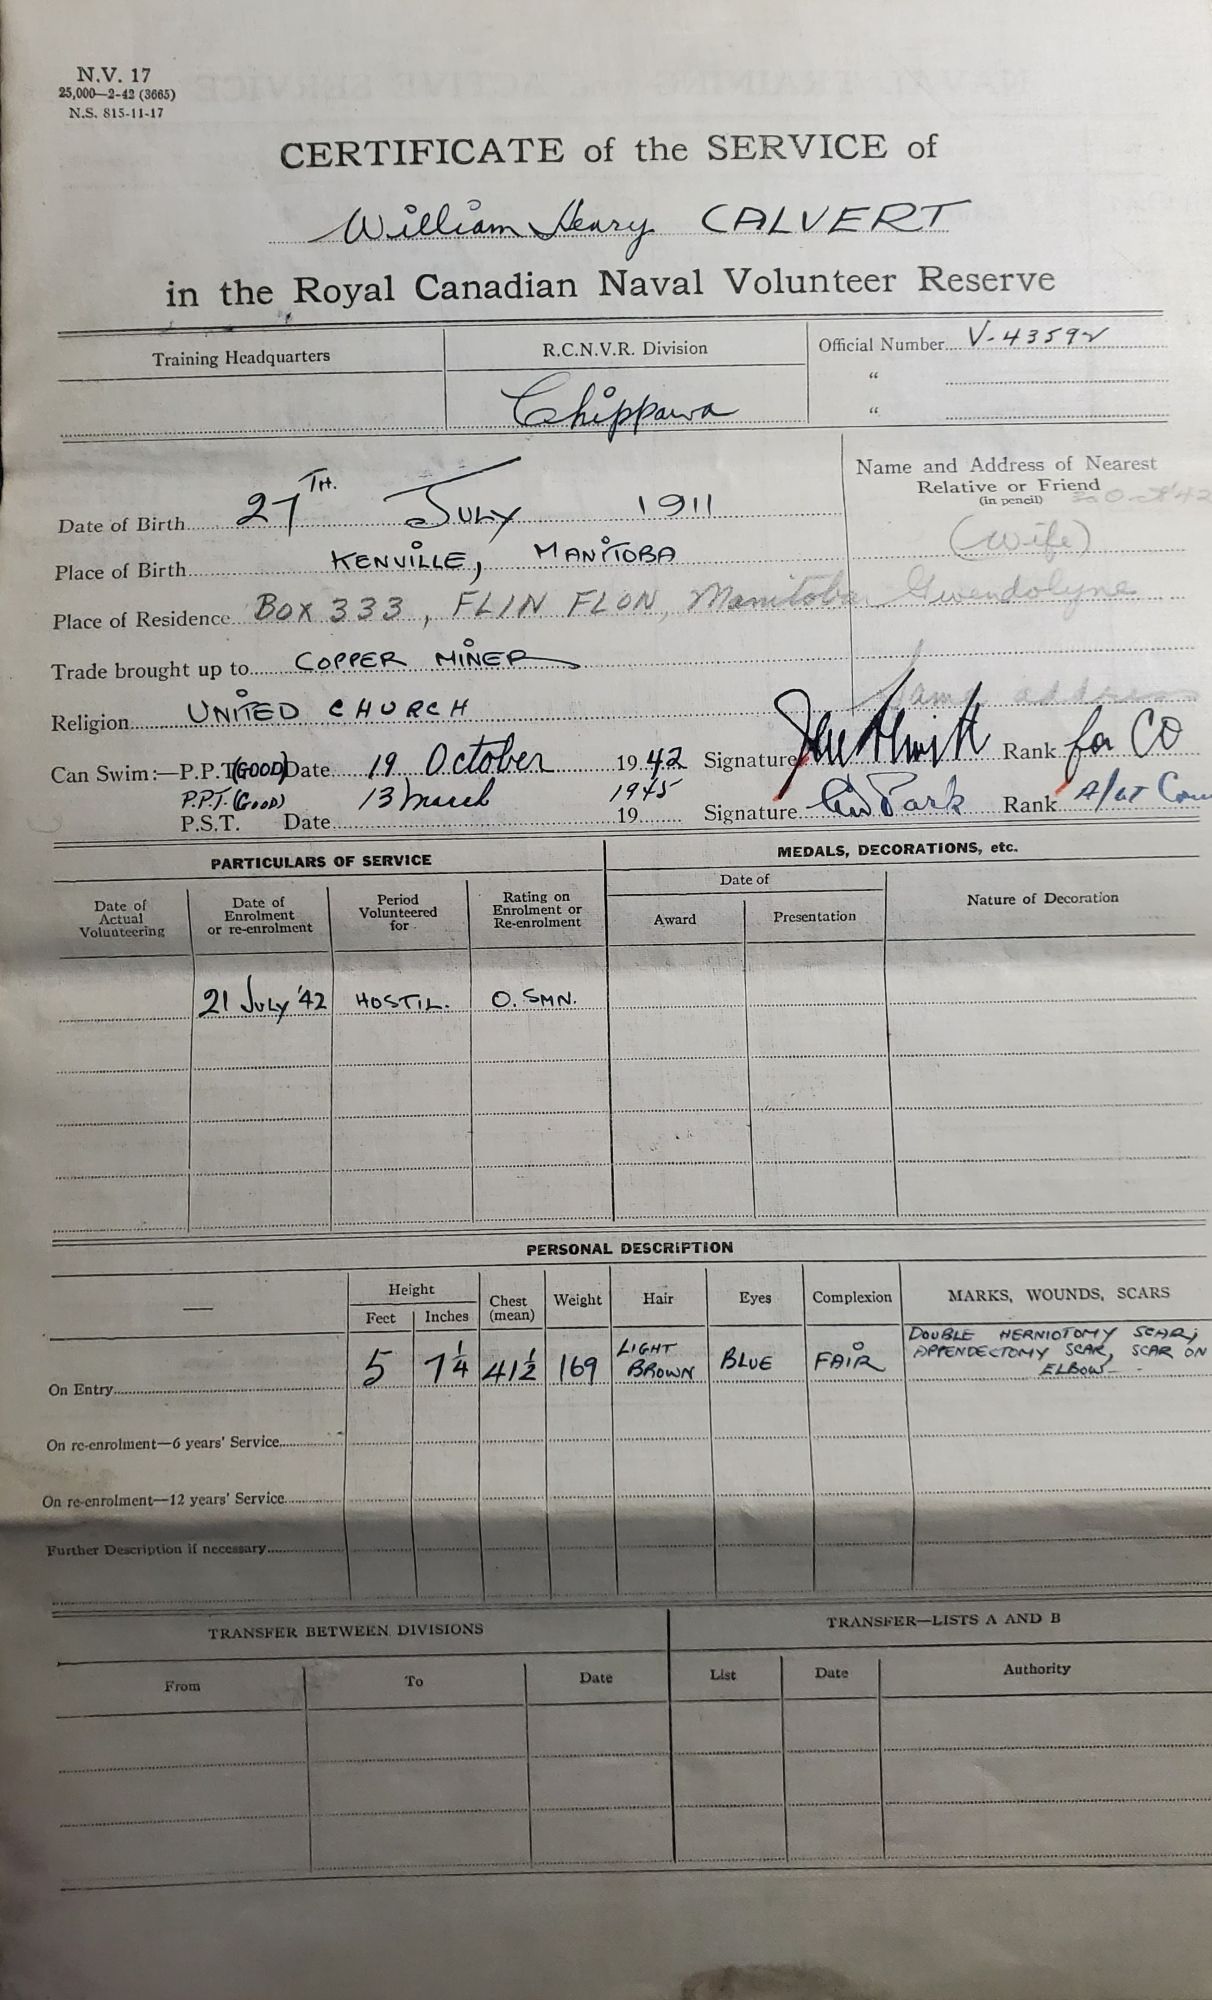 N.V. 17
25,000—2-42 (3665)
N.S. 815-11-17
CERTIFICATE of the SERVICE of
William Henry CALVERT
in the Royal Canadian Naval Volunteer Reserve
Training Headquarters
R.C.N.V.R. Division
Chippawa
Official Number V-43592
"
"
Date of Birth 27TH. JULY 1911
Place of Birth KENVILLE, MANITOBA
Place of Residence Box 333, FLIN FLON, Manitoba
Trade brought up to COPPER MINER
Religion UNITED CHURCH
Name and Address of Nearest
Relative or Friend
(in pencil)
(Wife)
Gwendolyne
Same address
Can Swim:—P.P.T. (GOOD) Date 19 October 1942 Signature Rank for CO
P.P.T. (GOOD) 13 March 1945 Signature Park Rank A/Lt Com
P.S.T. Date 19
PARTICULARS OF SERVICE
MEDALS, DECORATIONS, etc.
Date of
Actual
Volunteering
Date of
Enrolment
or re-enrolment
Period
Volunteered
for
Rating on
Enrolment or
Re-enrolment
Date of
Award
Presentation
Nature of Decoration
21 JULY '42 HOSTIL. O. SMN.
PERSONAL DESCRIPTION
—
Height
Feet
Inches
Chest
(mean)
Weight
Hair
Eyes
Complexion
MARKS, WOUNDS, SCARS
On Entry 5 7 1/4 41 1/2 169 LIGHT BROWN BLUE FAIR
DOUBLE HERNIOTOMY SCAR;
APPENDECTOMY SCAR, SCAR ON
ELBOW
On re-enrolment—6 years' Service
On re-enrolment—12 years' Service
Further Description if necessary
TRANSFER BETWEEN DIVISIONS
TRANSFER—LISTS A AND B
From
To
Date
List
Date
Authority